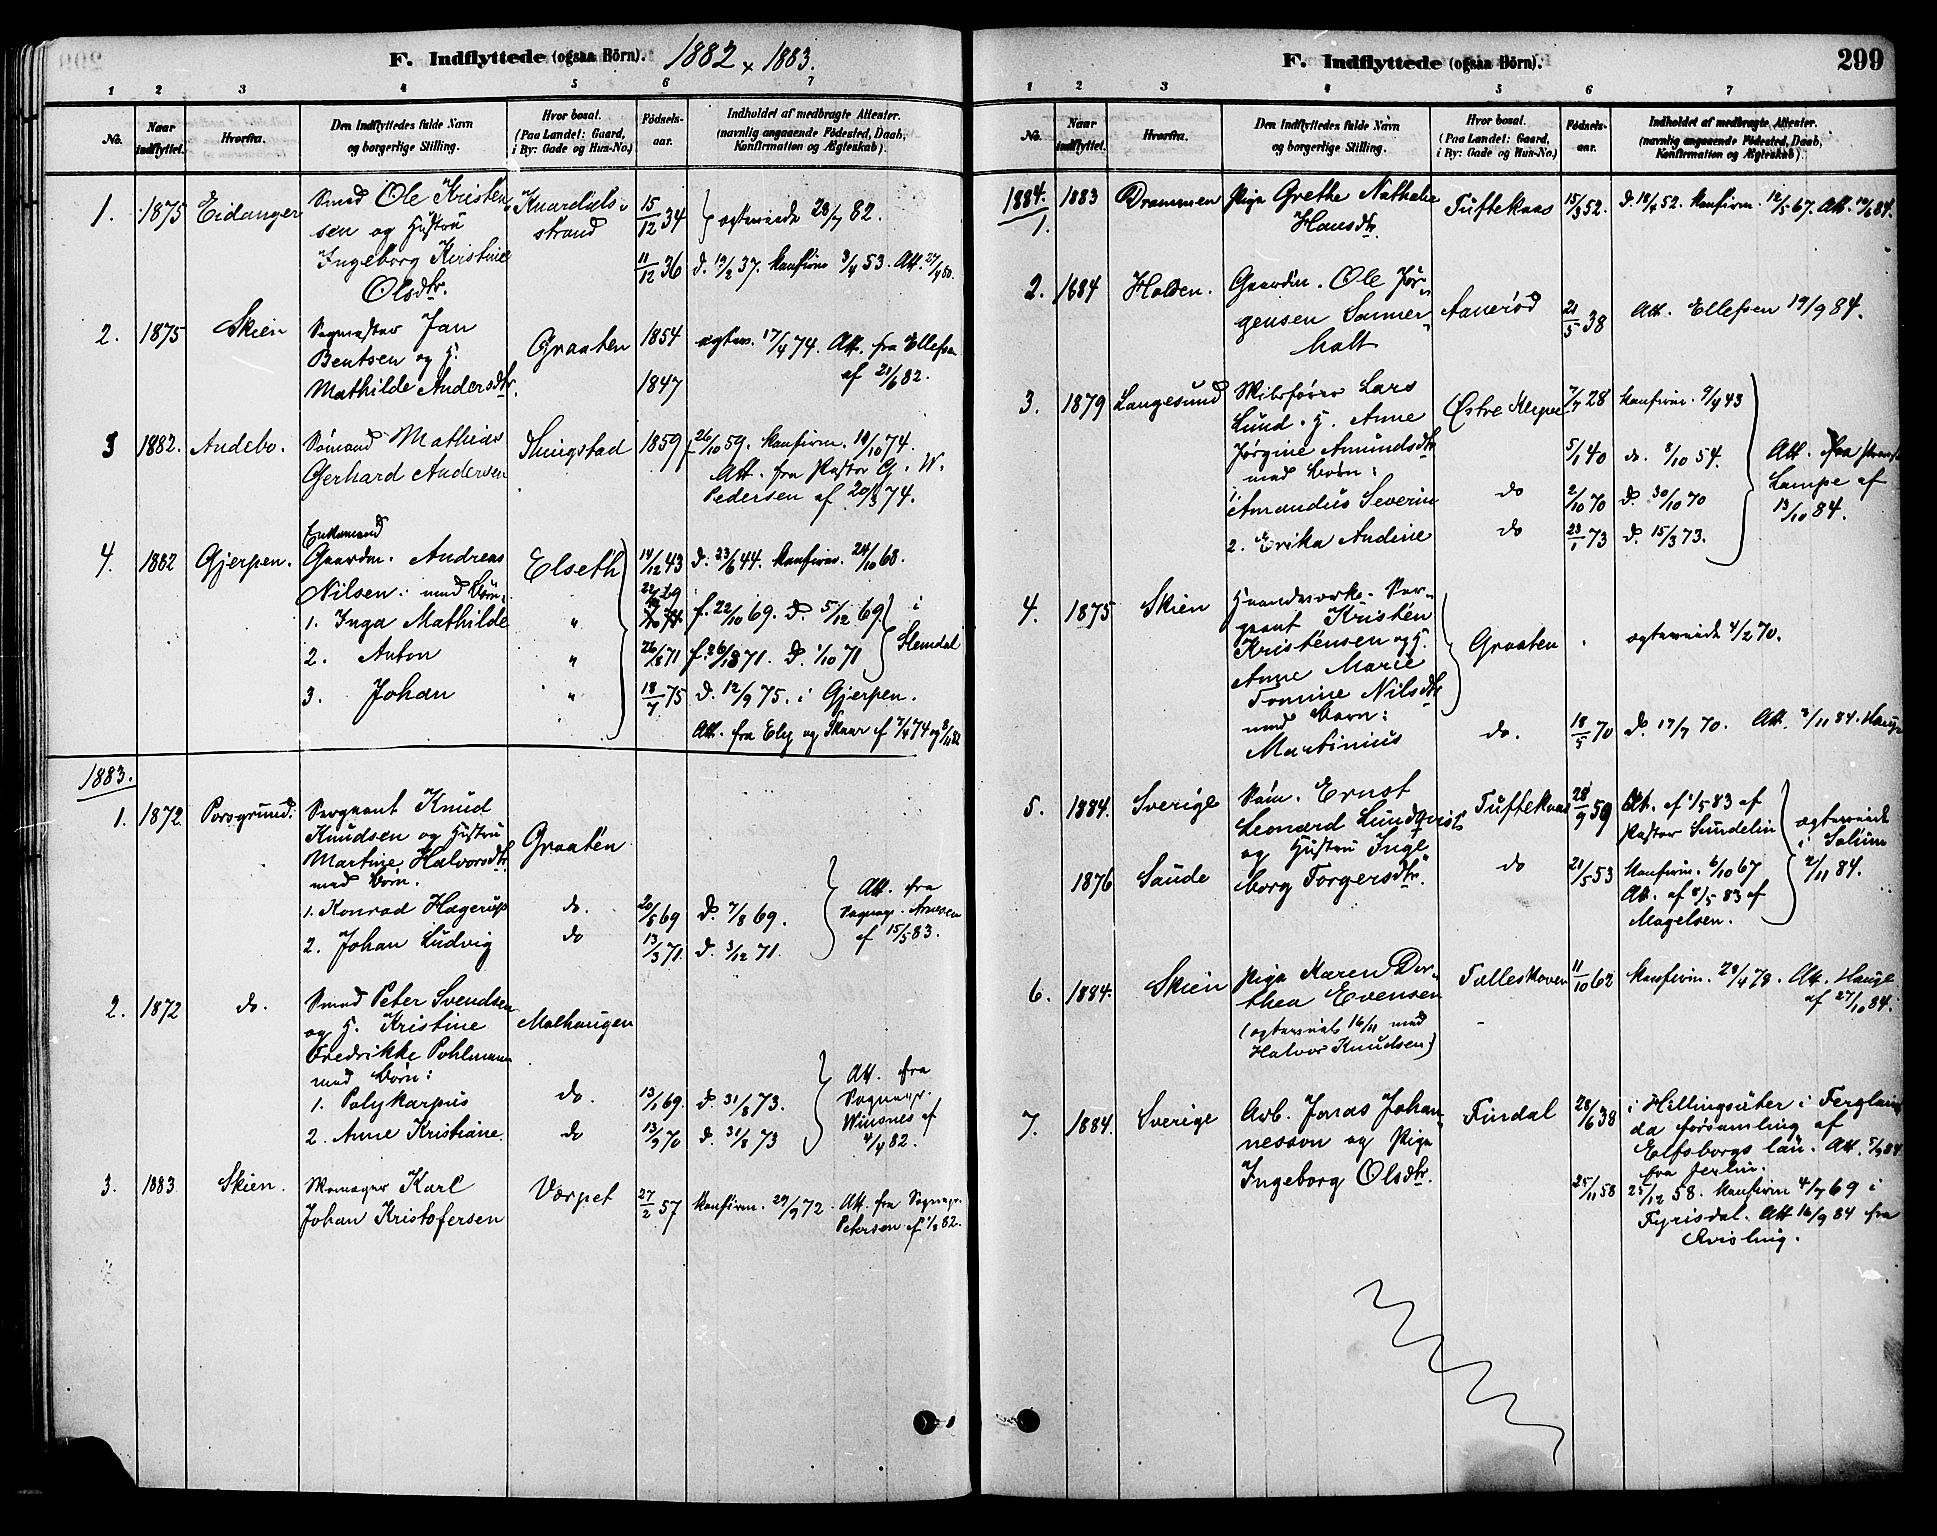 F. Indflyttede (ogsaa Börn). 1882 & 1883.
1 2 3 4 5 6 7
No.
Naar indflyttet.
Hvorfra.
Den Indflyttedes fulde Navn
og borgerlige Stilling.
Hvor bosat.
(Paa Landet: Gaard,
i By: Gade og Hus-No.)
Fødsels-
aar.
Indholdet af medbragte Attester.
(navnlig angaaende Födested, Daab,
Konfirmation og Ægteskab).
1. 1875 Eidanger Smed Ole Kristen Knardals-
sen og Hustru strand 15/12 34 ægteviede 28/7 82.
Ingeborg Kirstine 11/12 36 d. 12/2 37. konfirm 3/4 53. Att. 27/4 80.
Olsdtr.
2. 1875 Skien Jan Graaten 1854 ægtev. 17/4 74. Att. fra Ellefsen
Bentsen og H. af 21/6 82.
Mathilde Andersdtr. 1847
3 1882. Andebo. Sömand Mathias 1859 26/10 59. konfirm. 18/10 74.
Gerhard Andersen Att. fra Pastor G. W.
Pedersen af 20/3 74.
Enkemand
4. 1882 Gjerpen. Gaardm. Andreas Elseth 14/12 43 d. 23/6 44. konfirm. 24/10 68.
Nilsen: med Börn:
1. Inga Mathilde " f. 22/10 69. d. 5/12 69. i
2. Anton " 26/8 71 f. 26/8 71. d. 1/10 71 Slemdal
3. Johan " 18/7 75 d. 12/9 75. i Gjerpen.
Att. fra og Skaar af 7/4 74 og 8/11 82
1883.
1. 1872 Porsgrund. Sergeant Knud
Knudsen og Hustru Graaten
Martine Halvorsdtr.
med Börn.
1. Konrad Hagerup do. 20/5 69 d. 7/8 69. Att. fra
2. Johan Ludvig do 13/3 71. d. 3/12 71. Sognepr. Arnesen
af 15/5 83.
2. 1872 do. Smed Peter Svendsen
og H. Kristine Molhaugen
Fredrikke Pohlmann
med Börn:
1. Polykarpus do. 13/1 69. d. 31/8 73. Att. fra
2. Anne Kristiane. do 13/9 70 d. 31/8 73 Sognepr.
Winsnes af
4/4 82.
3. 1883 Skien. Skomager Karl Værpet 27/2 57 konfirm. 29/9 72. Att. fra Sognepr.
Johan Kristofersen Peterson af 1/8 82.
F. Indflyttede (ogsaa Börn). 299
1 2 3 4 5 6 7
No.
Naar indflyttet.
Hvorfra.
Den Indflyttedes fulde Navn
og borgerlige Stilling.
Hvor bosat.
(Paa Landet: Gaard,
i By: Gade og Hus-No.)
Fødsels-
aar.
Indholdet af medbragte Attester.
(navnlig angaaende Födested, Daab,
Konfirmation og Ægteskab).
1884.
1. 1883 Drammen Pige Grethe Nathalie Tuftekaas 15/3 52. d. 18/4 52. konfirm. 12/5 67. Att. 12/6 84.
Hansdtr.
2. 1884 Holden. Gaardm. Ole Jör- Aanerød 21/5 38 Att. Ellefsen 19/9 84.
gensen Sanner-
holt
3. 1879 Langesund Skibsförer Lars Østre Klepve 7/7 28 konfirm. 9/4 43
Lund. H. Anne
Jörgine Amundsdtr 5/1 40 do. 8/10 54. Att. fra
med Börn: Lampe af
1. Amandus Severin do 2/10 70 d. 30/10 70 13/10 84.
2. Erika Andine do 23/1 73 d. 15/3 73.
4. 1875 Skien Haandverks-Ser-
geant Kristen
Kristensen og H. Graaten ægteviede 4/2 70.
Anne Marie
Tomine Nilsdtr
med Barn:
Martinius do. 18/5 70 d. 17/7 70. Att. 3/11 84. Hauge
5. 1884. Sverige Söm. Ernst Tuftekaas 28/9 59 Att. af 1/5 83 af ægteviede
Leonard Lundqvist Pastor Sundelin i Solum
og Hustru Inge- 2/11 84.
1876 Saude borg Torgersdtr. do 21/5 53 konfirm. 6/10 67
Att. af 8/5 83 af
Magelsen.
6. 1884. Skien Pige Karen Dor- Fælleskoven 11/10 62 konfirm. 28/4 78. Att. Hauge
thea Evensen af 27/10 84.
(ægteviet 16/11 med
Halvor Knudsen)
7. 1884. Sverige Arb. Jonas Johan- Findal 28/6 38 i Hillingsäter i Fergelan-
nesson og Pige da forsamling af
Elfsborgs län. Att. 5/9 84
Ingeborg Olsdtr. fra
25/11 58 25/12 58. konfirm 4/7 69 i
Fyrisdal. Att 16/9 84 fra
Qvisling.